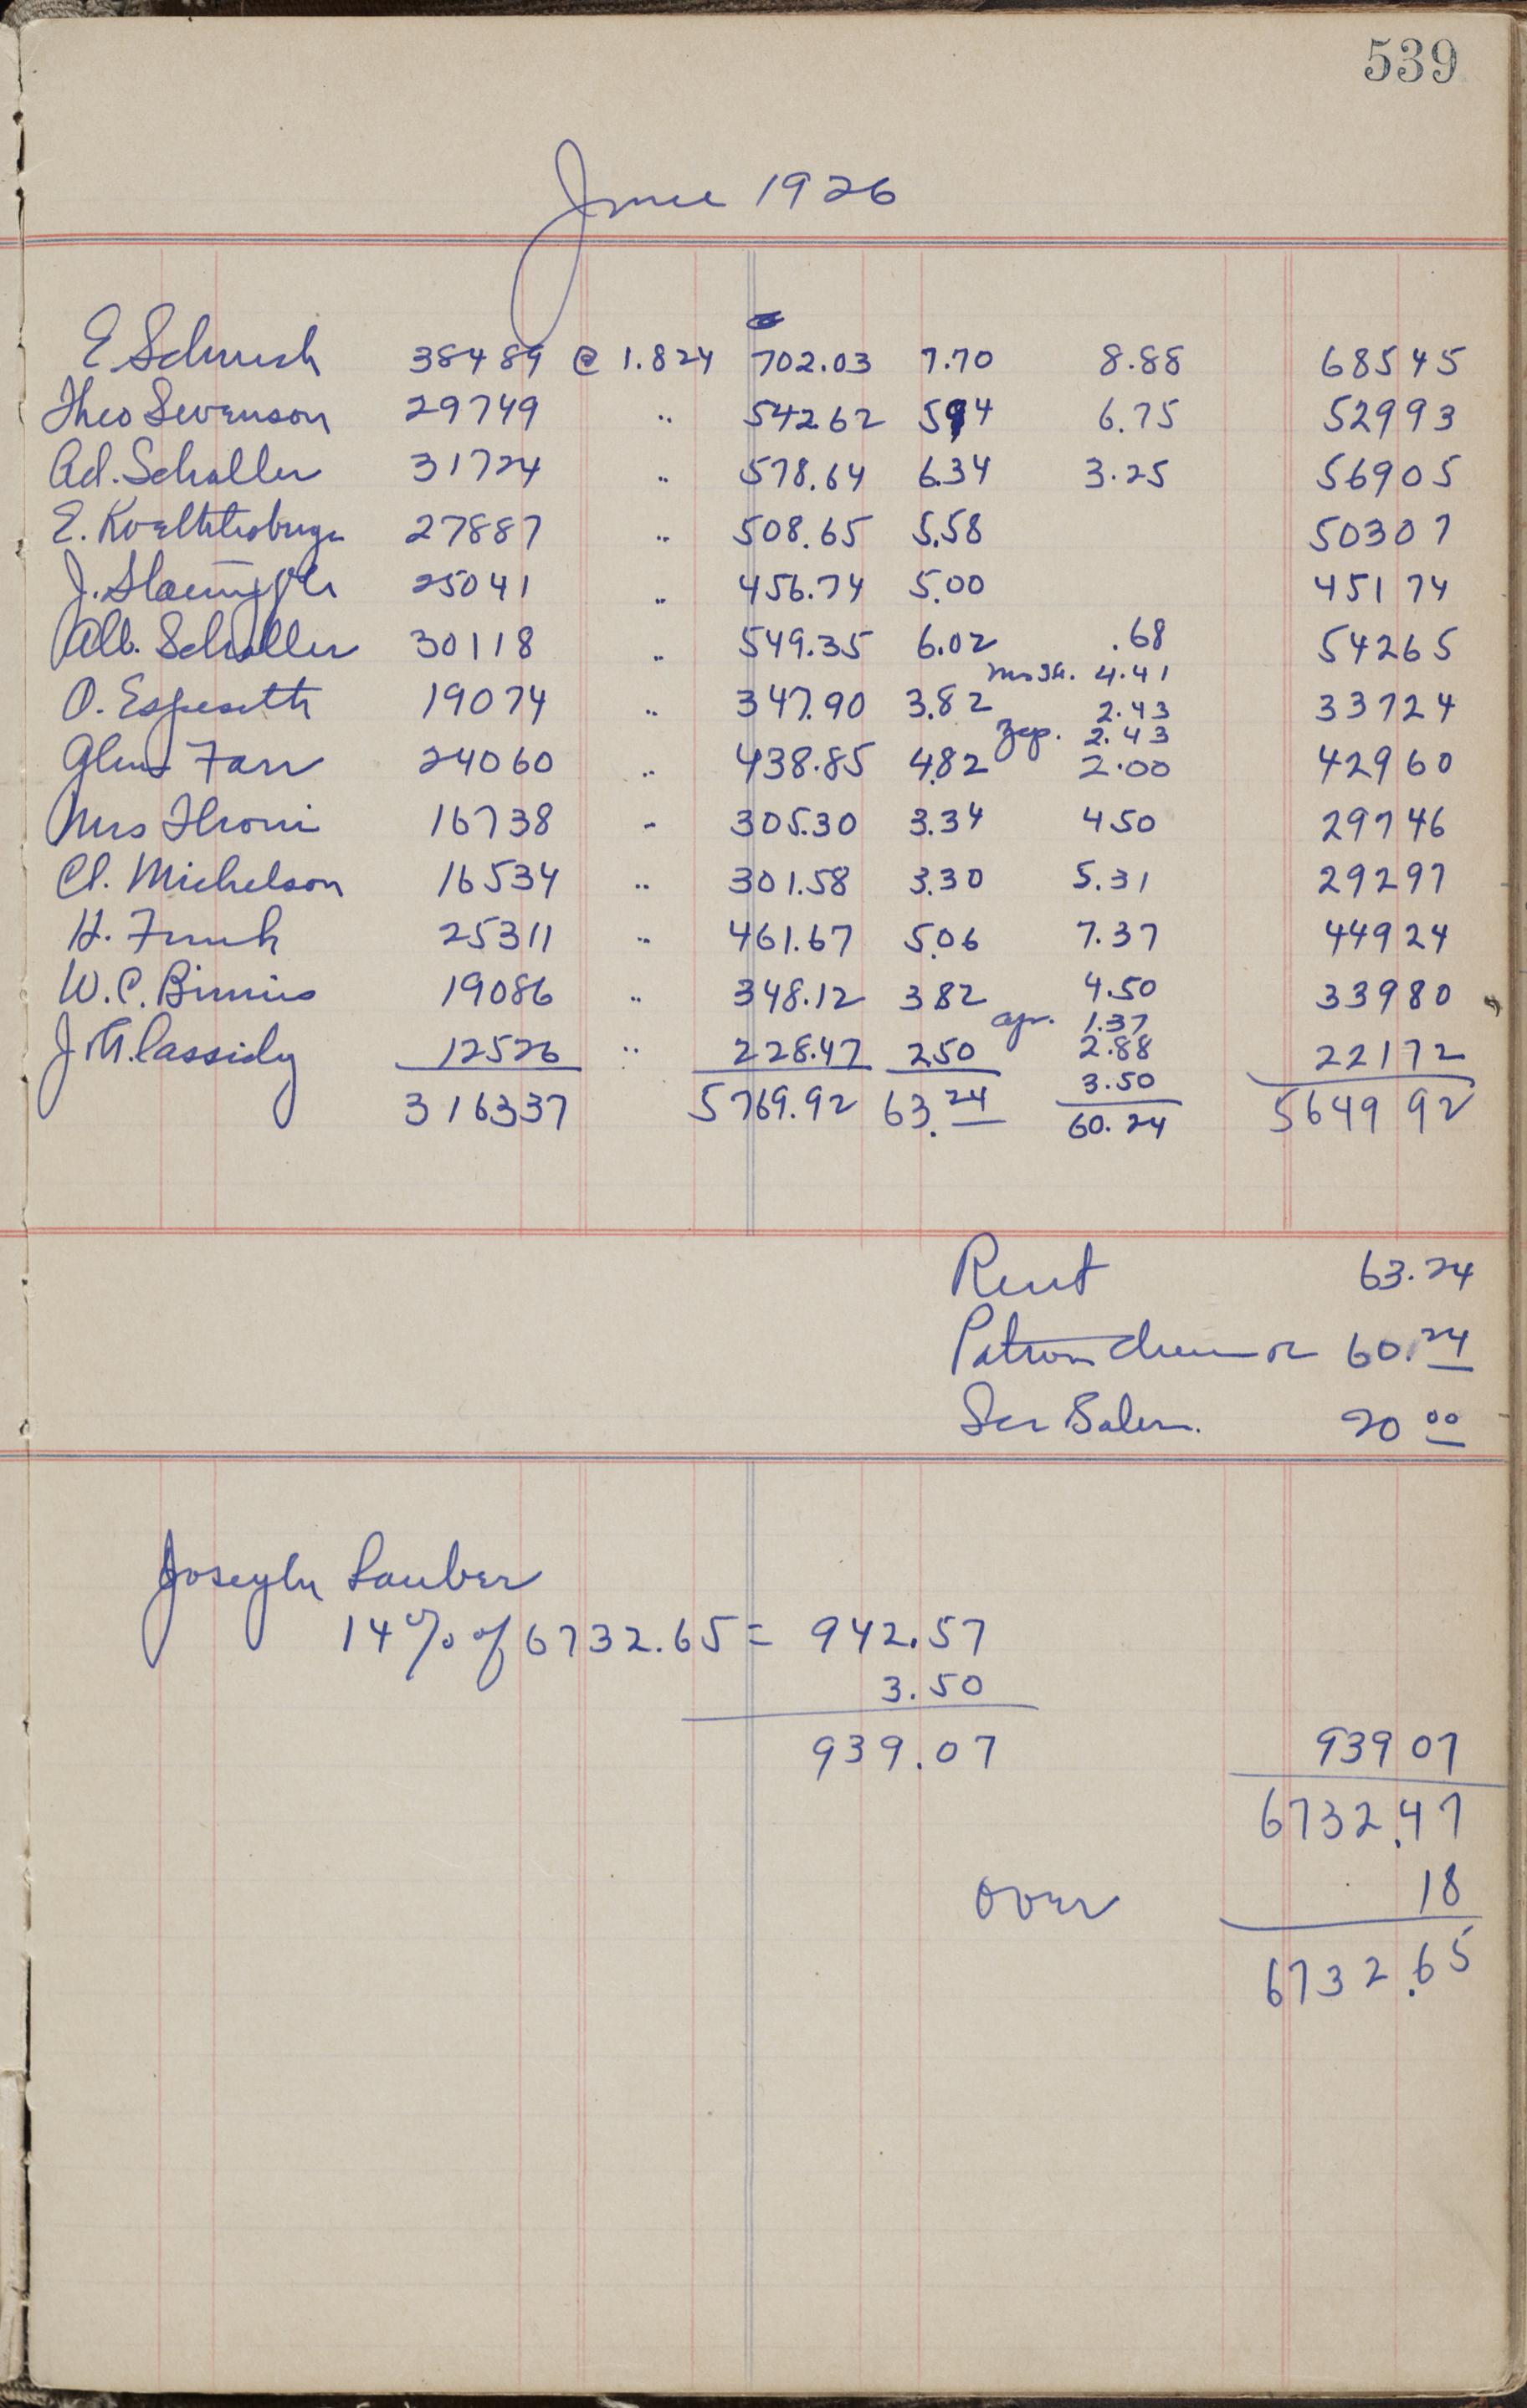 539
June 1926
E Schursh 38489 @ 1.824 702.03 7.70 8.88 685 45
Theo Swenson 29749 " 542.62 5 94 6.75 529 93
Ad. Schaller 31724 " 578.64 6.34 3.25 569 05
E. 27887 " 508.65 5.58 503 07
J. 25041 " 456.74 5.00 451 74
Alb. Schaller 30118 " 549.35 6.02 .68 542 65
4.41
O. Espeseth 19074 " 347.90 3.82 2.43 337 24
Zep. 2.43
Glen Farr 24060 " 438.85 4.82 2.00 429 60
Mrs Throni 16738 " 305.30 3.34 4 50 297 46
Cl. Michelson 16534 " 301.58 3.30 5.31 292 97
H. Funk 25311 " 461.67 5.06 7.37 449 24
W.C. Binnies 19086 " 348.12 3 82 4.50 339 80
ap. 1.37
J.M. Cassidy 12526 " 228.47 2 50 2.88 221 72
3.50
316337 5769.92 63.24 60.24 5649 92
Rent 63.24
Patron 60.24
Sec Salery. 20 00
Joseph Lauber
14% of 6732.65 = 942.57
3.50
939.07 939 07
6732.47
over 18
6732.65